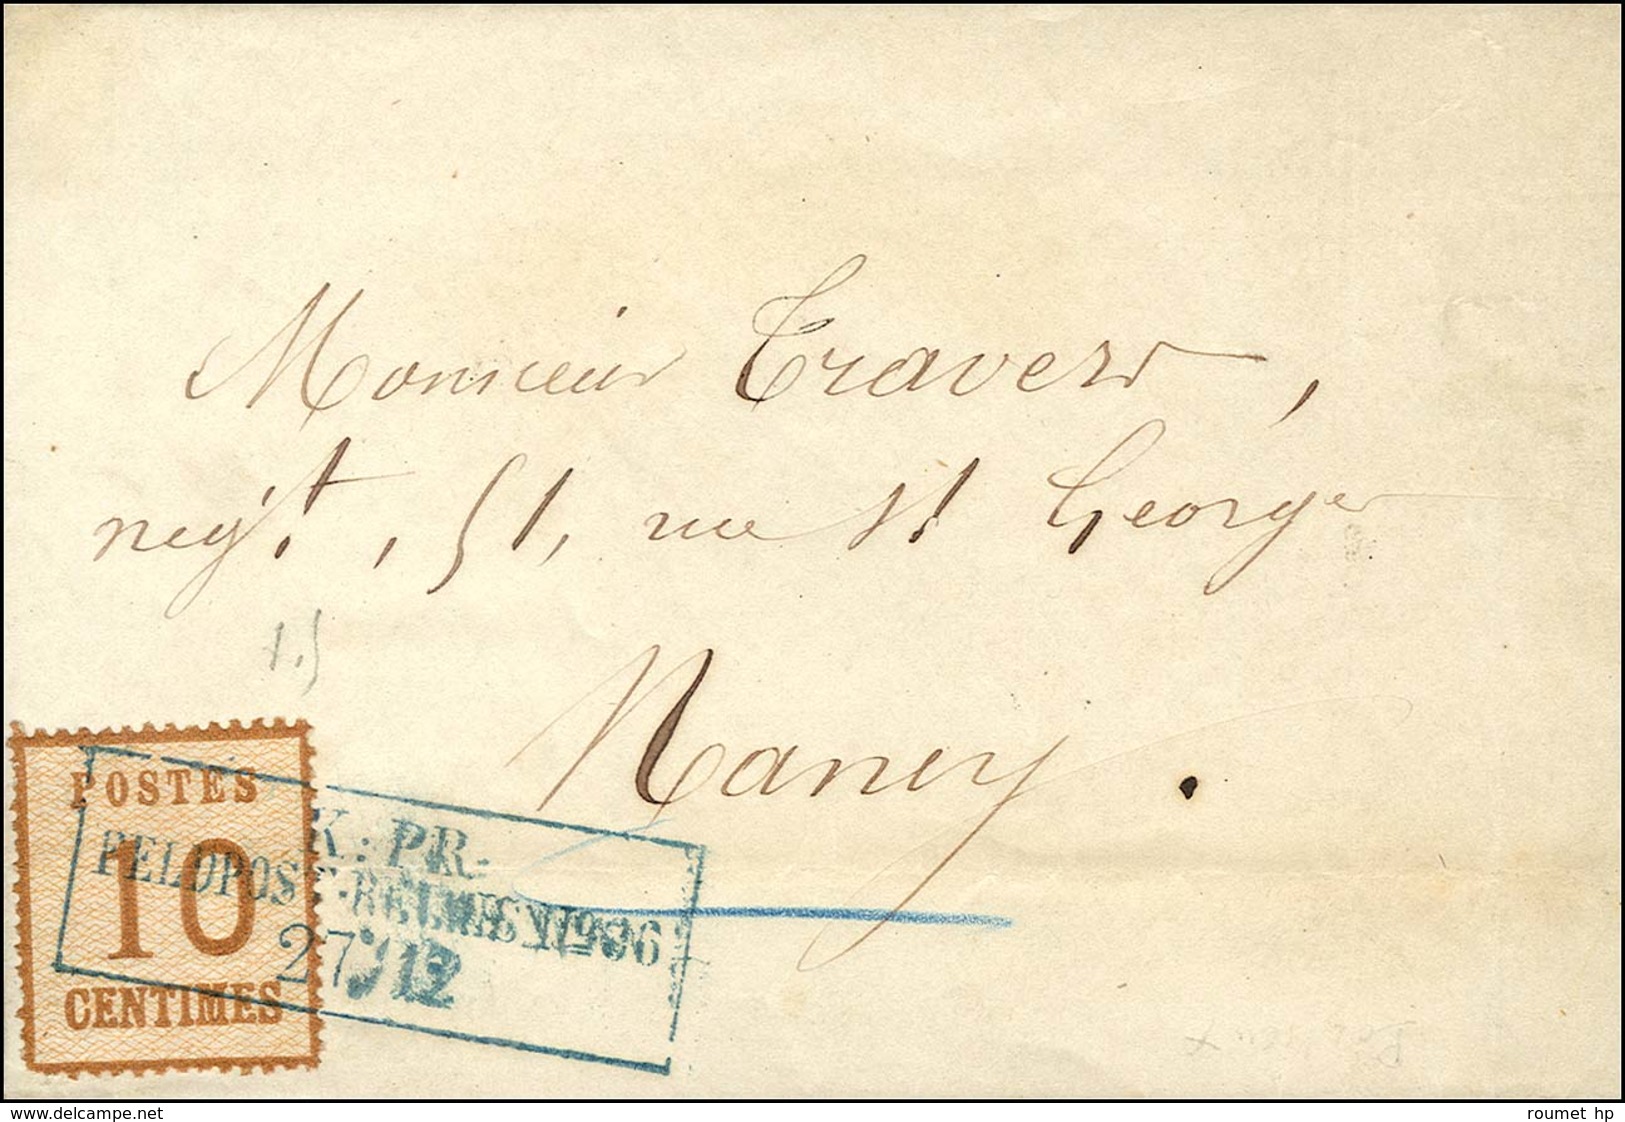 Monsieur Travers,
negt., 51, rue St George
Nancy.
1.5
POSTES
10
CENTIMES
K. PR.
FELDPOST-RELAIS No
27 12
www.delcampe.net
roumet hp